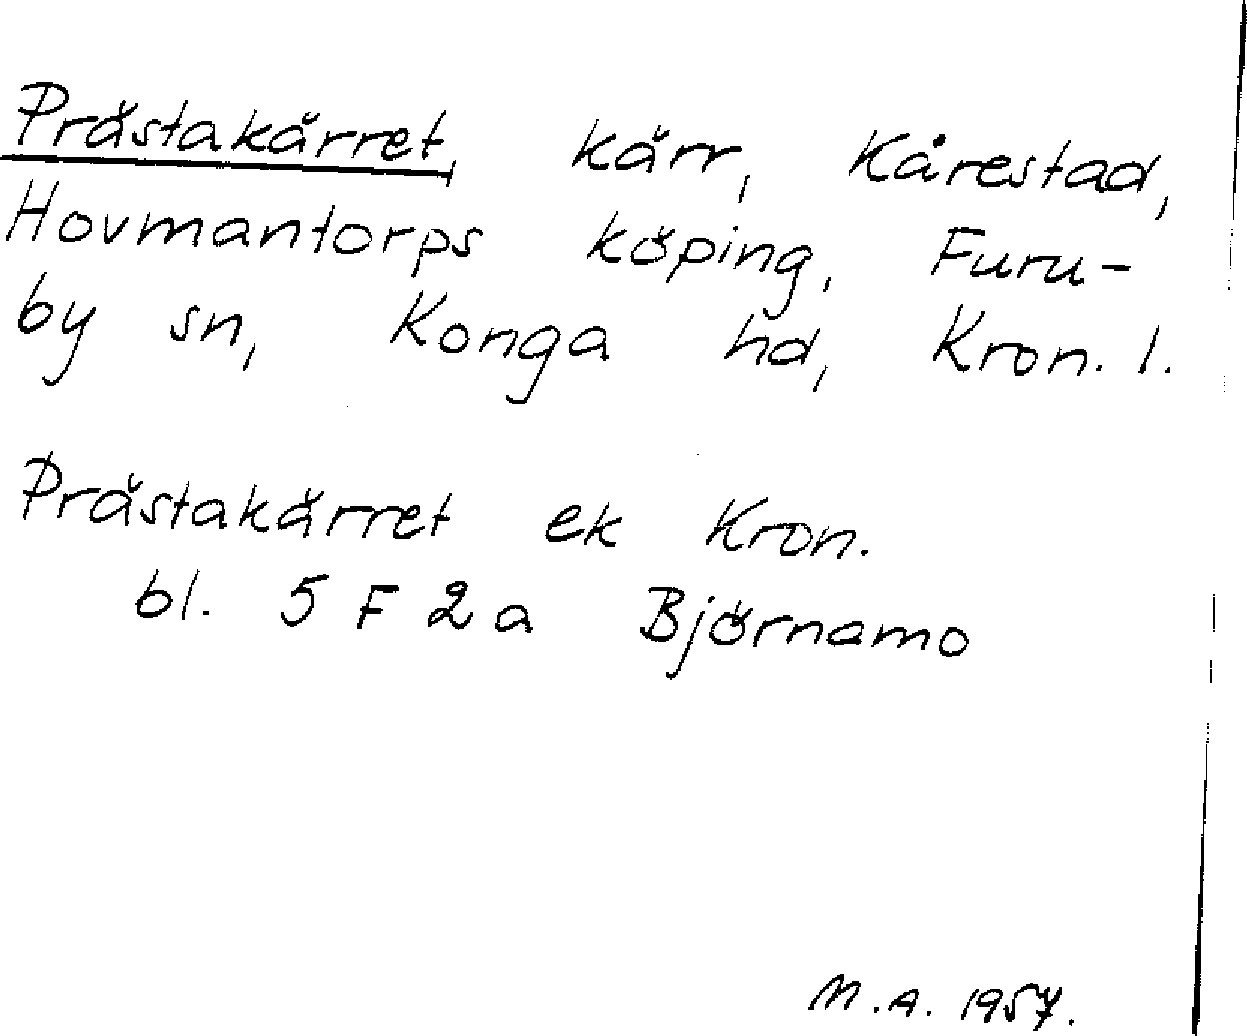 Prästakärret, kärr, Kårestad,
Hovmantorps köping, Furu-
by sn, Konga hd, Kron. l.
Prästakärret ek Kron.
bl. 5 F 2 a Björnamo
M.A. 1957.